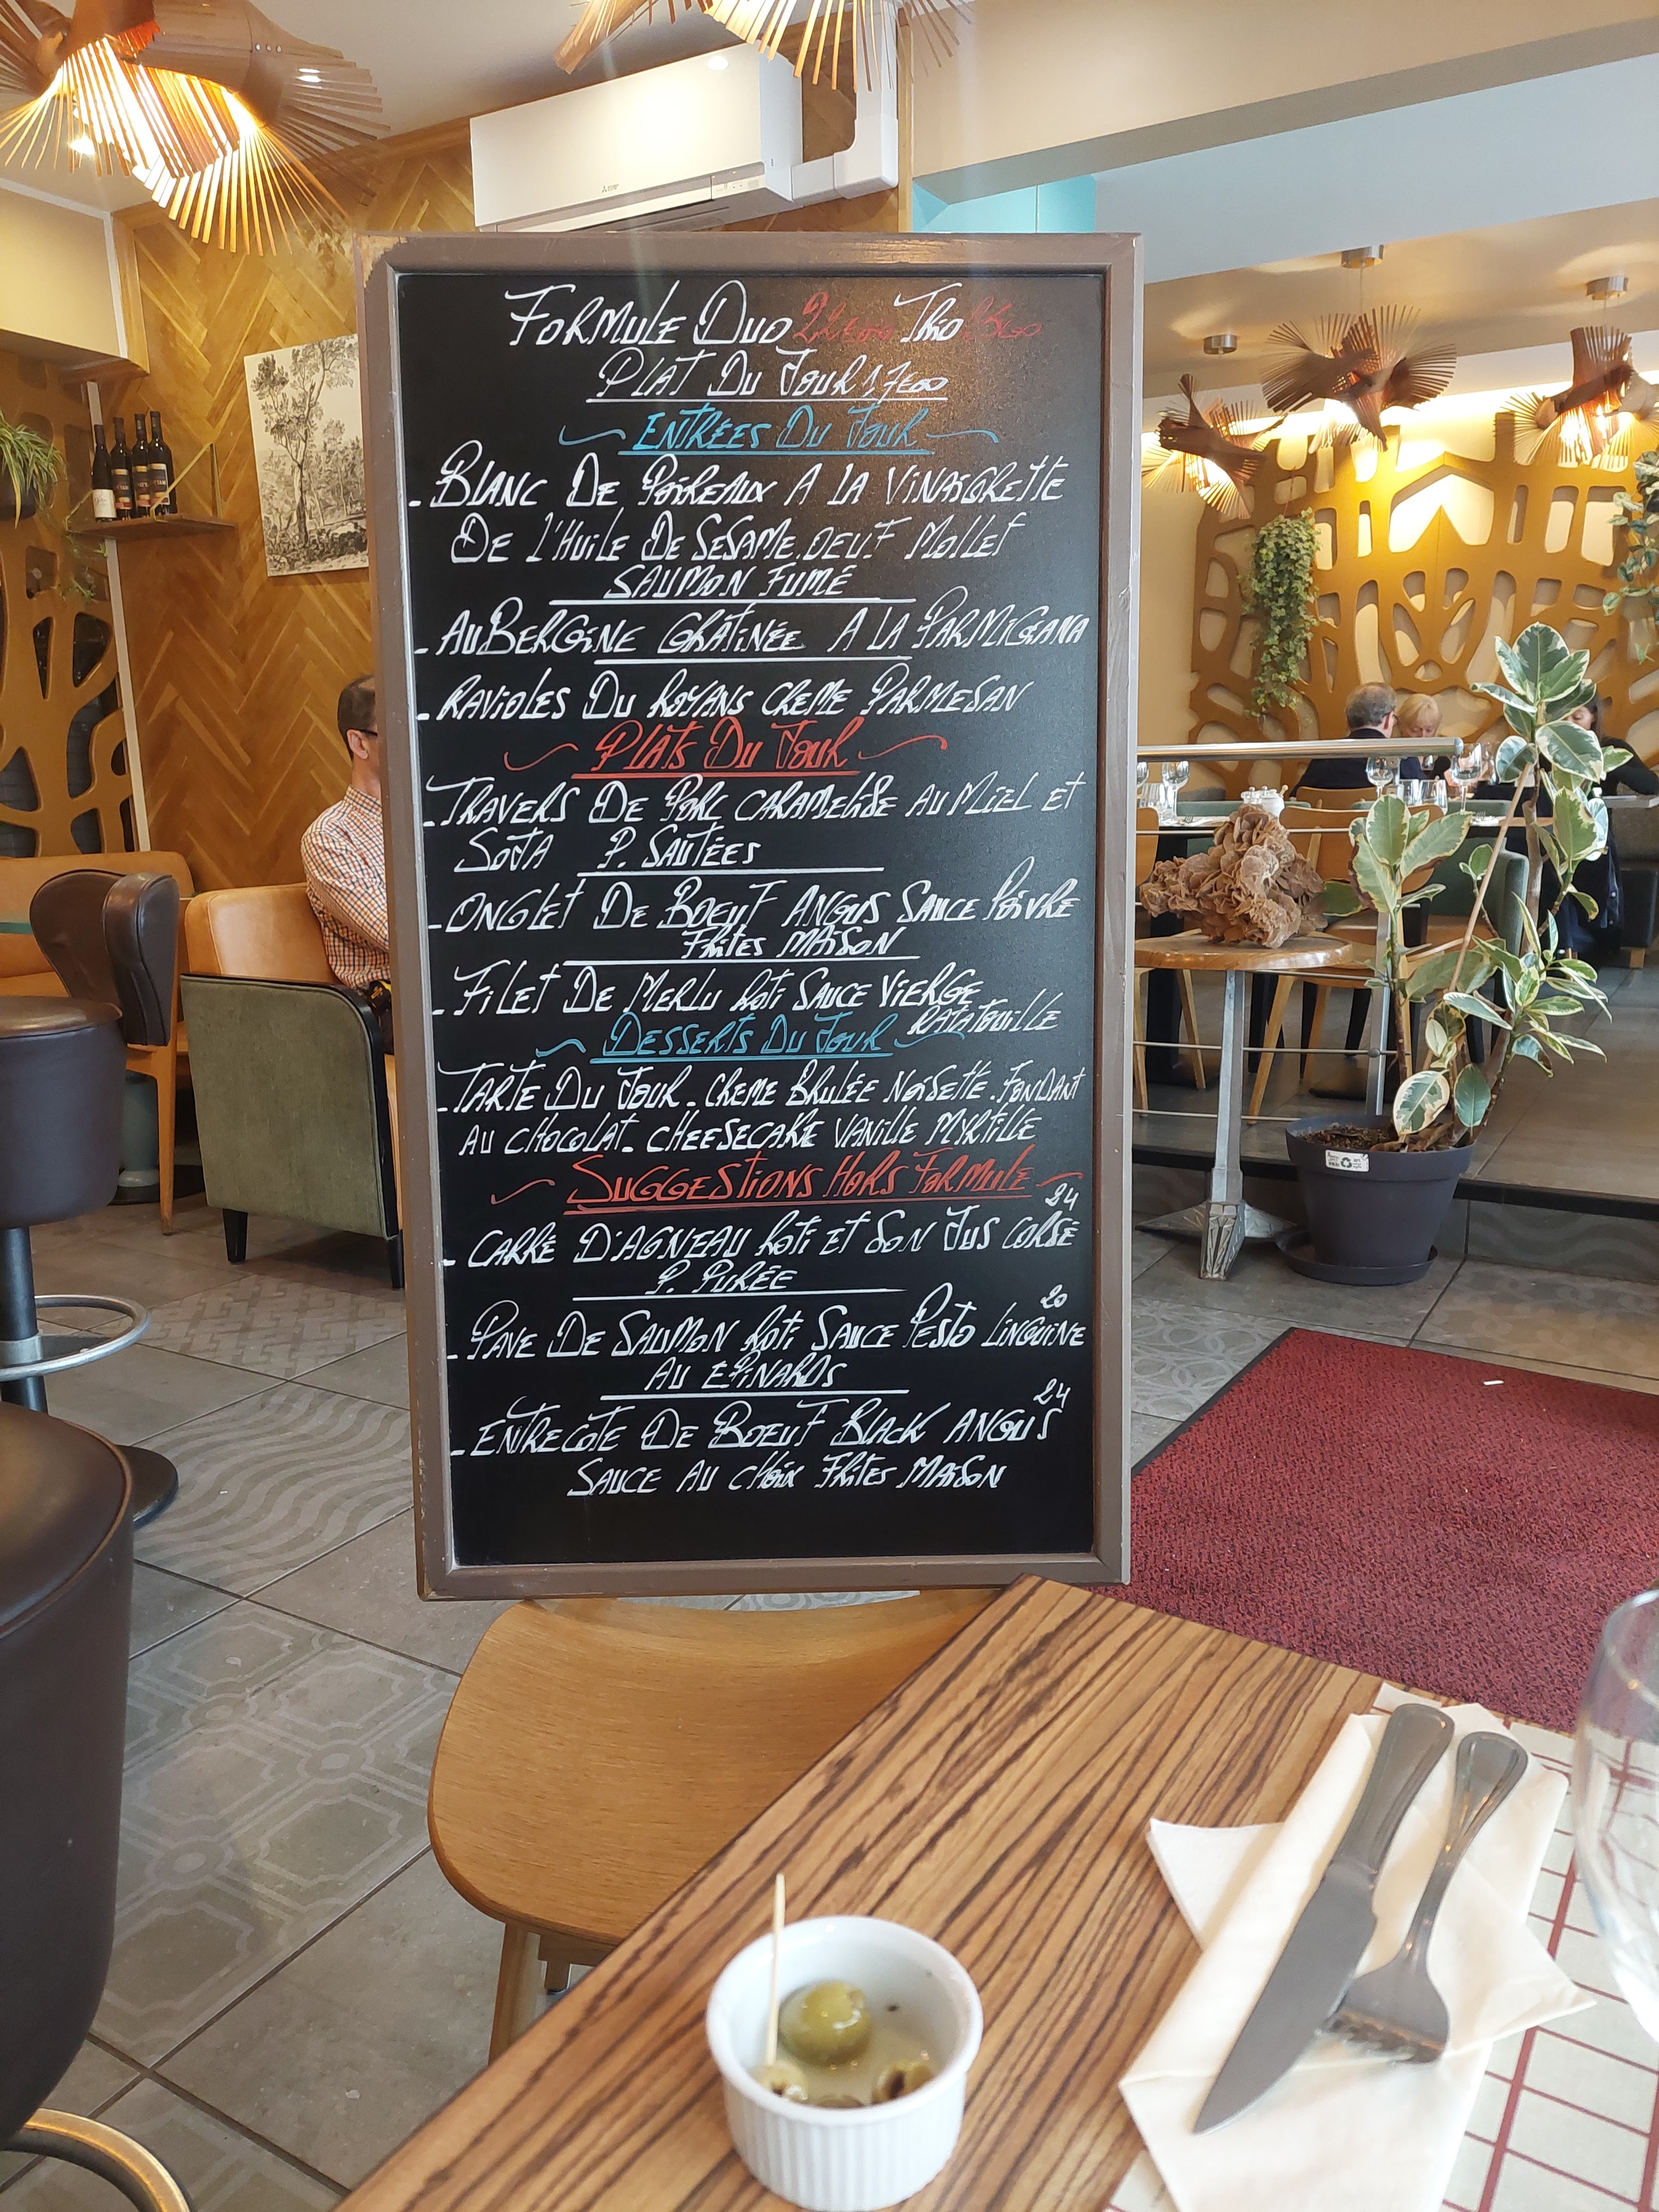 FORMULE DUO 22€00 TRIO
PLAT DU JOUR 17€00
ENTRÉES DU JOUR
- BLANC DE POIREAUX A LA VINAIGRETTE
DE L'HUILE DE SESAME. OEUF MOLLET
SAUMON FUMÉ
- AUBERGINE GRATINÉE A LA PARMIGIANA
- RAVIOLES DU ROYANS CREME PARMESAN
PLATS DU JOUR
- TRAVERS DE PORC CARAMELISE AU MIEL ET
SOJA P. SAUTÉES
- ONGLET DE BOEUF ANGUS SAUCE POIVRE
FRITES MAISON
- FILET DE MERLU ROTI SAUCE VIERGE
RATATOUILLE
DESSERTS DU JOUR
- TARTE DU JOUR - CREME BRULÉE NOISETTE . FONDANT
AU CHOCOLAT. CHEESECAKE VANILLE MYRTILLE
SUGGESTIONS HORS FORMULE
24
- CARRÉ D'AGNEAU ROTI ET SON JUS CORSÉ
P. PURÉE
20
- PAVE DE SAUMON ROTI SAUCE PESTO LINGUINE
AU EPINARDS
24
- ENTRECOTE DE BOEUF BLACK ANGUS
SAUCE AU CHOIX FRITES MAISON